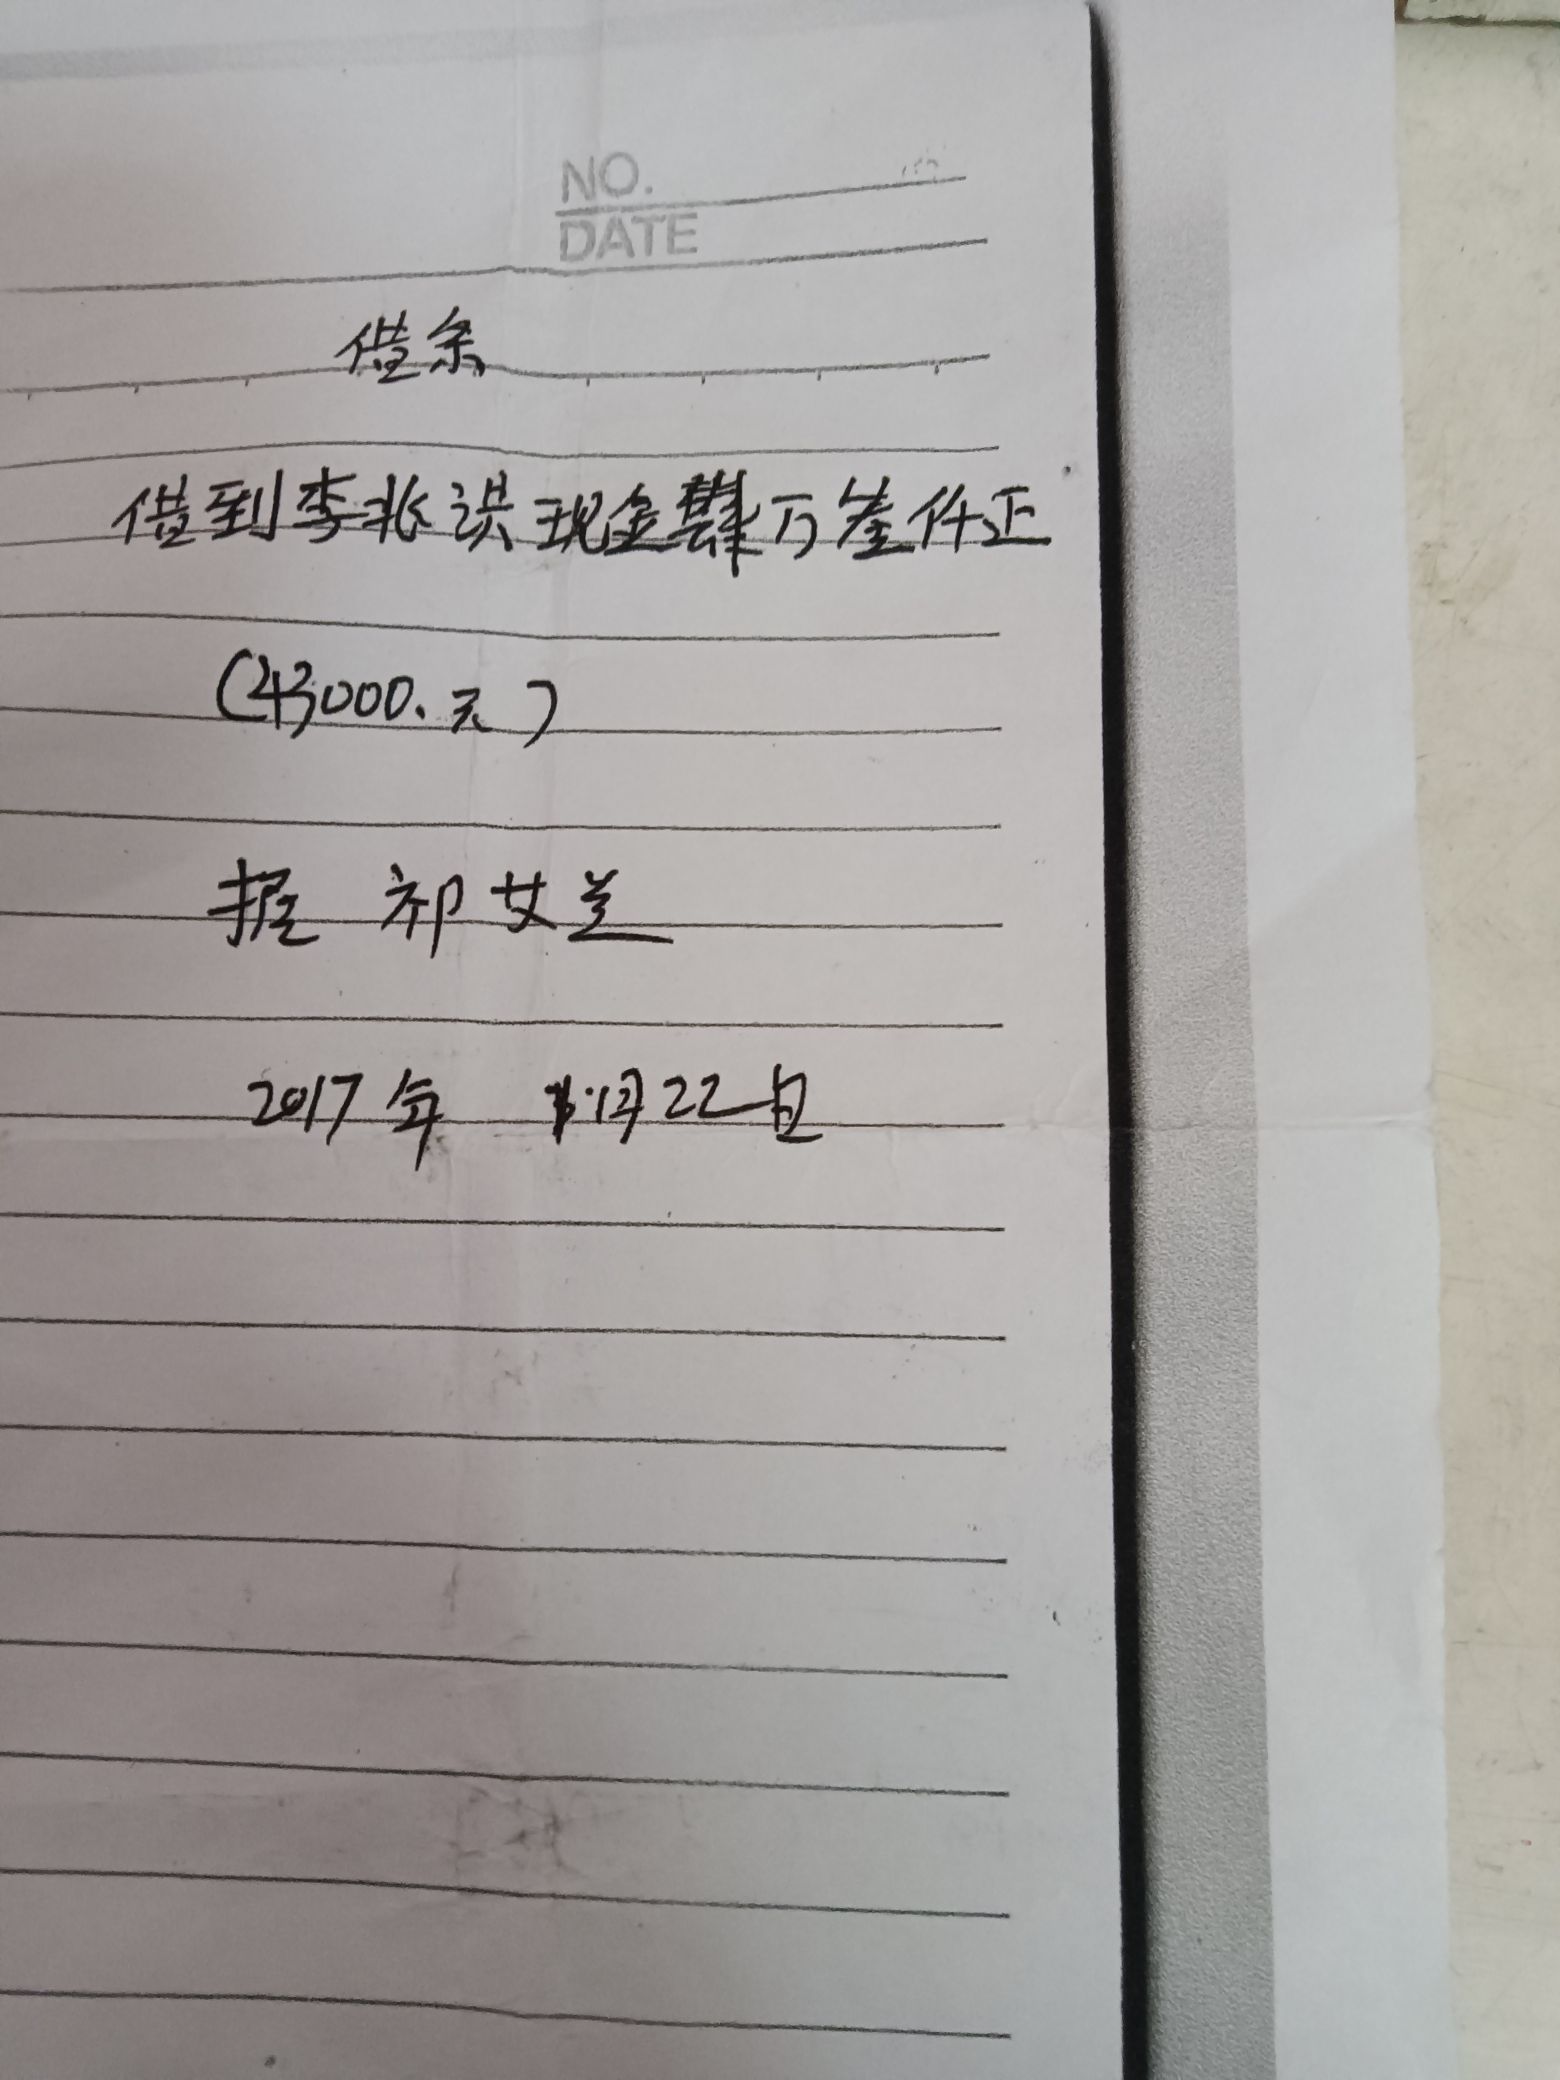 NO.
DATE
借条
借到李兆洪现金肆万叁仟正
(43000.元)
据 祁女兰
2017年 月22日